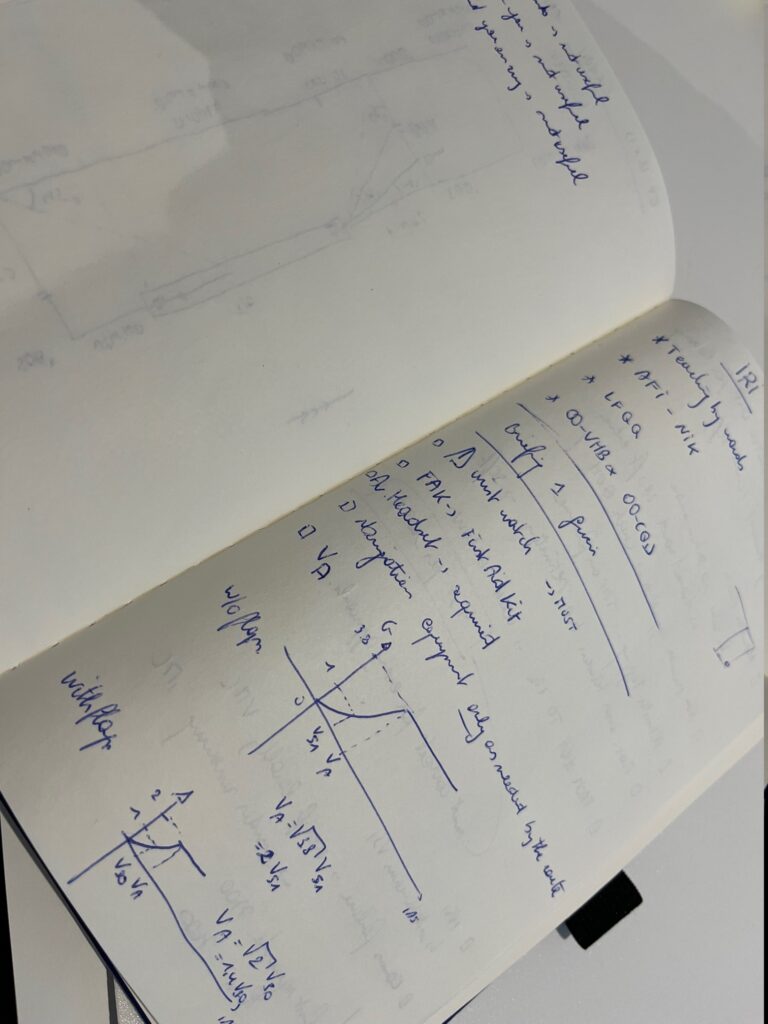 is not useful
you is not useful
is not useful
IRI
* Teaching by words
* AFI - NIK
* LFQQ
* OO-VHB OO-CQD
Briefing 1
unit watch -> MUST
FAK -> First Aid Kit
Headset -> required
Navigation equipment only as needed by the route
VA
w/o flaps
G
3.8
1
0
VS1 VA
IAS
VA = √3.8 VS1
= 2 VS1
with flaps
2
1
VS0 VA
VA = √2 VS0
= 1,4 VS0